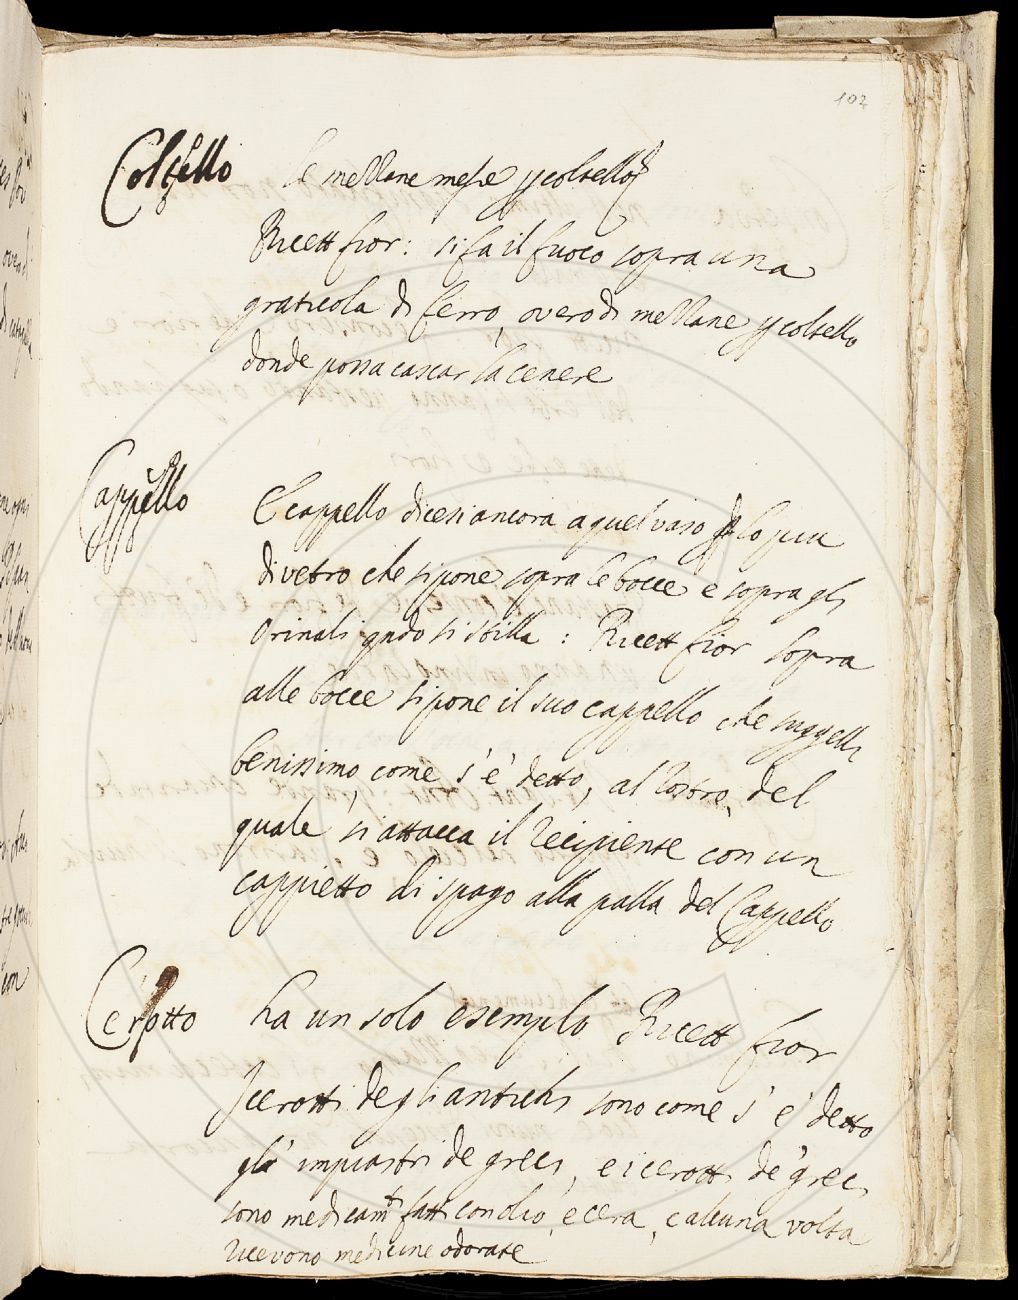 102
Coltello Se mezzane messe p coltello
Ricett fior: si fa il fuoco sopra una
graticola di ferro, overo di mezzane p coltello
donde possa cascar la cenere
Cappello E cappello dicesi ancora a quel vaso
di vetro che si pone sopra le bocce e sopra gli
Orinali qndo si stilla: Ricett fior sopra
alle bocce si pone il suo cappello che suggelli
benissimo, come s'è detto, al rostro, del
quale si attacca il recipiente con un
cappietto di spago alla palla del Cappello
Cerotto ha un solo esemplo Ricett fior
I cerotti degli antichi sono come s'è detto
gli impiastri de greci, e i cerotti de greci
sono medicamti fatti con olio, e cera, e alcuna volta
ricevono medicine odorate